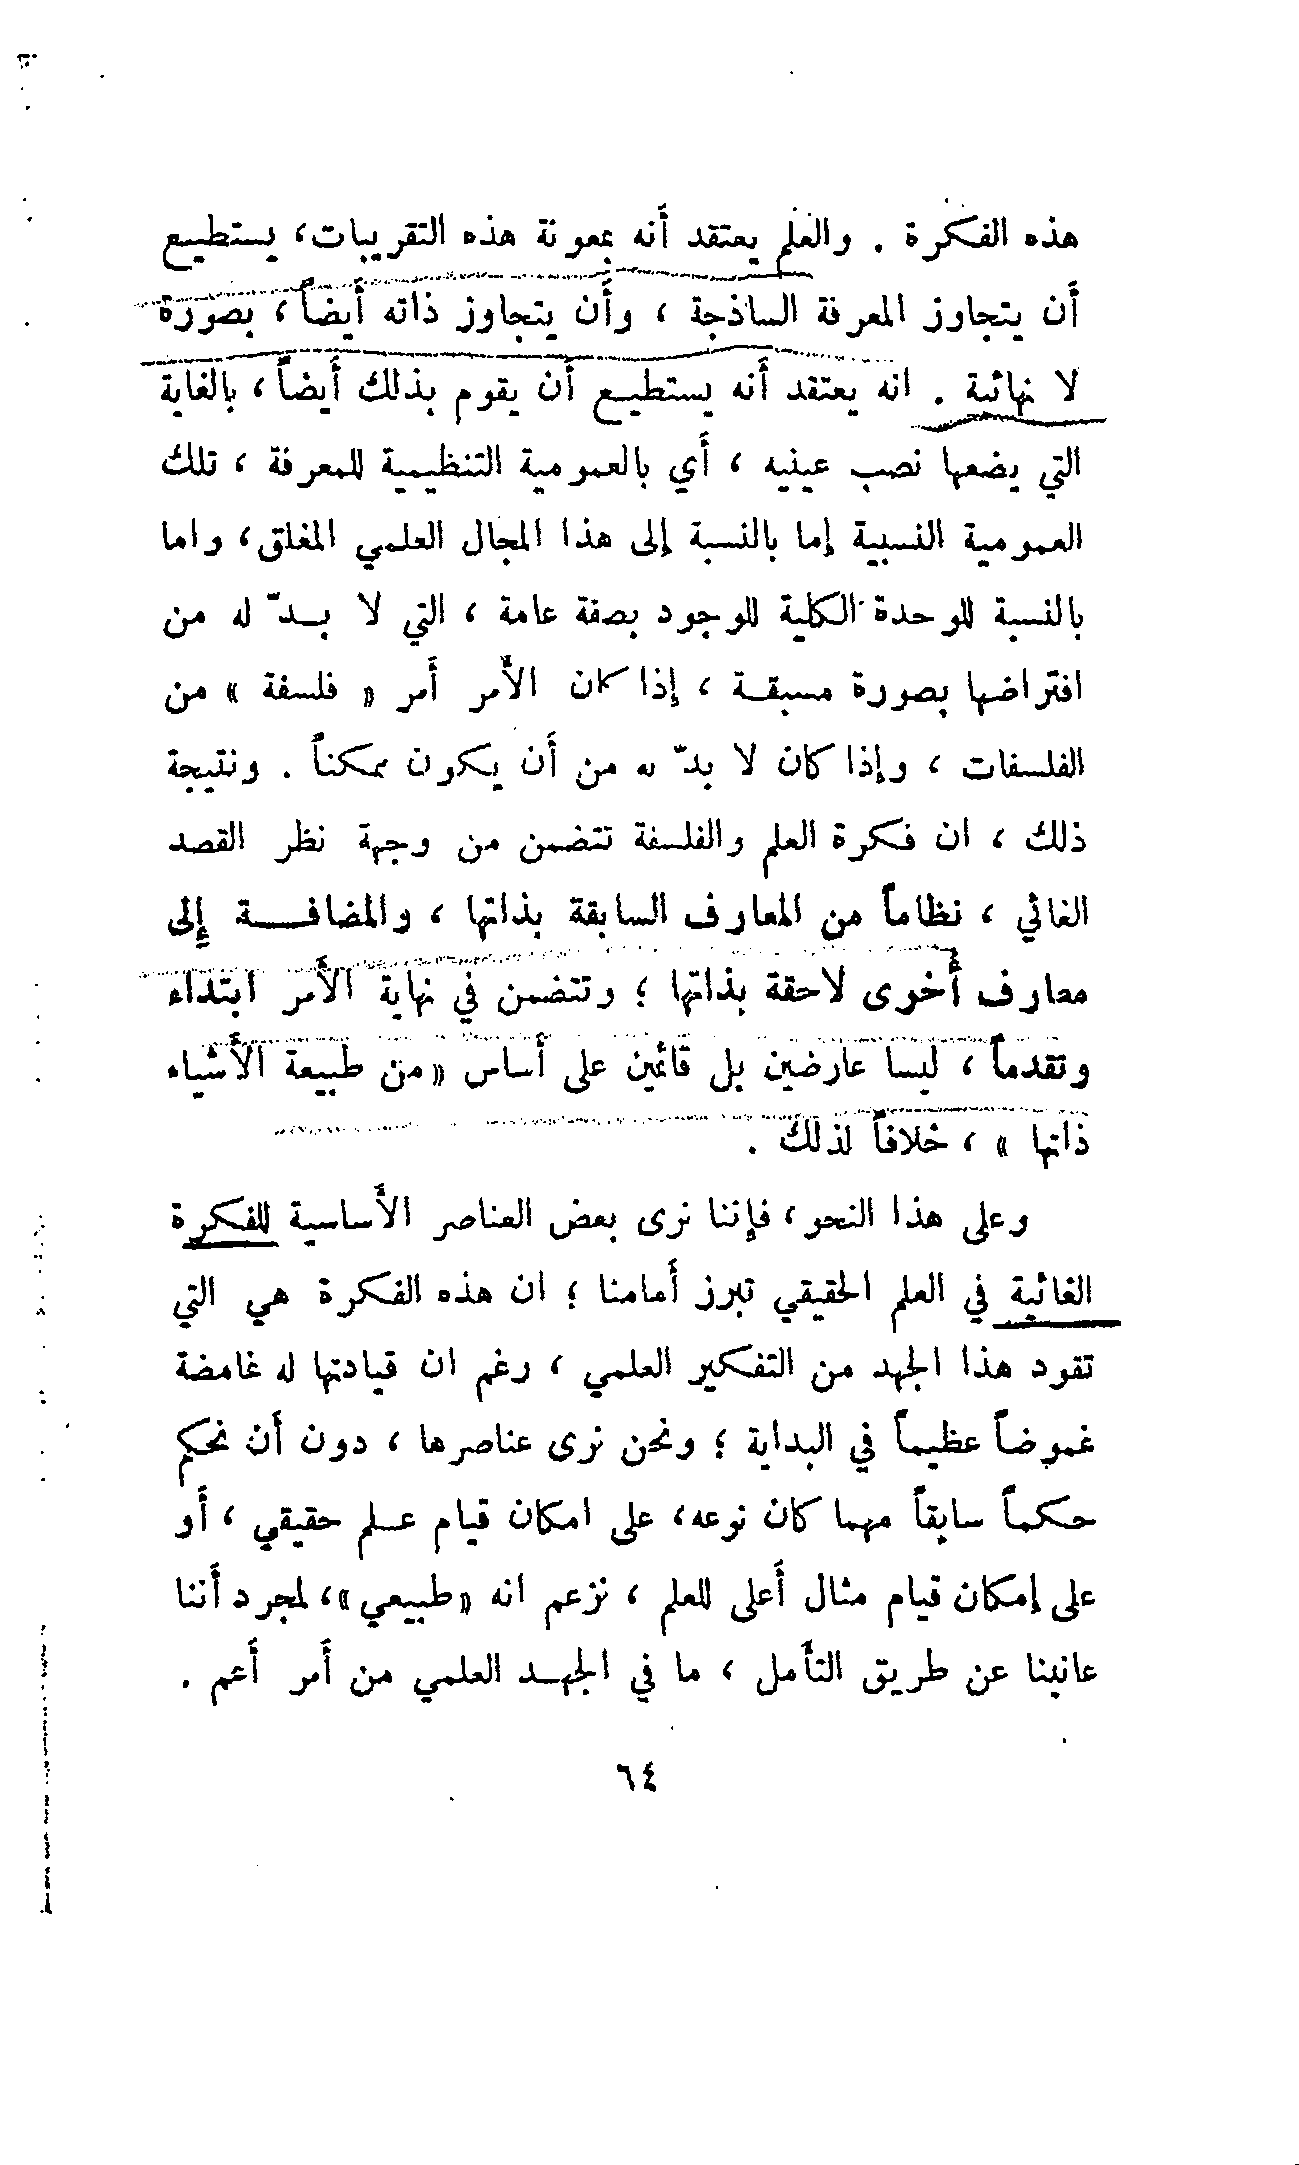 هذه الفكرة . والعلم يعتقد أنه بمعونة هذه التقريبات، يستطيع
أن يتجاوز المعرفة الساذجة ، وأن يتجاوز ذاته أيضاً ، بصورة
لا نهائية . انه يعتقد أنه يستطيع أن يقوم بذلك أيضاً ، بالغاية
التي يضعها نصب عينيه ، أي بالعمومية التنظيمية للمعرفة ، تلك
العمومية النسبية إما بالنسبة إلى هذا المجال العلمي المغلق، واما
بالنسبة للوحدة الكلية للوجود بصفة عامة ، التي لا بدّ له من
افتراضها بصورة مسبقة ، إذا كان الأمر أمر « فلسفة » من
الفلسفات ، وإذا كان لا بدّ له من أن يكون ممكناً . ونتيجة
ذلك ، ان فكرة العلم والفلسفة تتضمن من وجهة نظر القصد
الغائي ، نظاماً من المعارف السابقة بذاتها ، والمضافة إلى
معارف أخرى لاحقة بذاتها ؛ وتتضمن في نهاية الأمر ابتداء
وتقدماً ، ليسا عارضين بل قائمين على أساس « من طبيعة الأشياء
ذاتها » ، خلافاً لذلك .
وعلى هذا النحو، فإننا نرى بعض العناصر الأساسية للفكرة
الغائية في العلم الحقيقي تبرز أمامنا ؛ ان هذه الفكرة هي التي
تقود هذا الجهد من التفكير العلمي ، رغم ان قيادتها له غامضة
غموضاً عظيماً في البداية ؛ ونحن نرى عناصرها ، دون أن نحكم
حكماً سابقاً مهما كان نوعه، على امكان قيام علم حقيقي ، أو
على إمكان قيام مثال أعلى للعلم ، نزعم انه «طبيعي»، لمجرد أننا
عانينا عن طريق التأمل ، ما في الجهد العلمي من أمر أعم .
٦٤